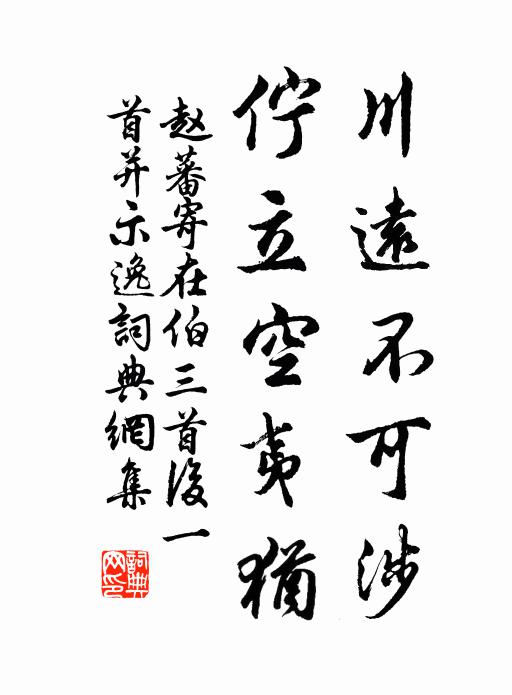 川遠不可涉
佇立空夷猶
赵蕃寄在伯三首後一
首并示逸詞典網集
詞典网印